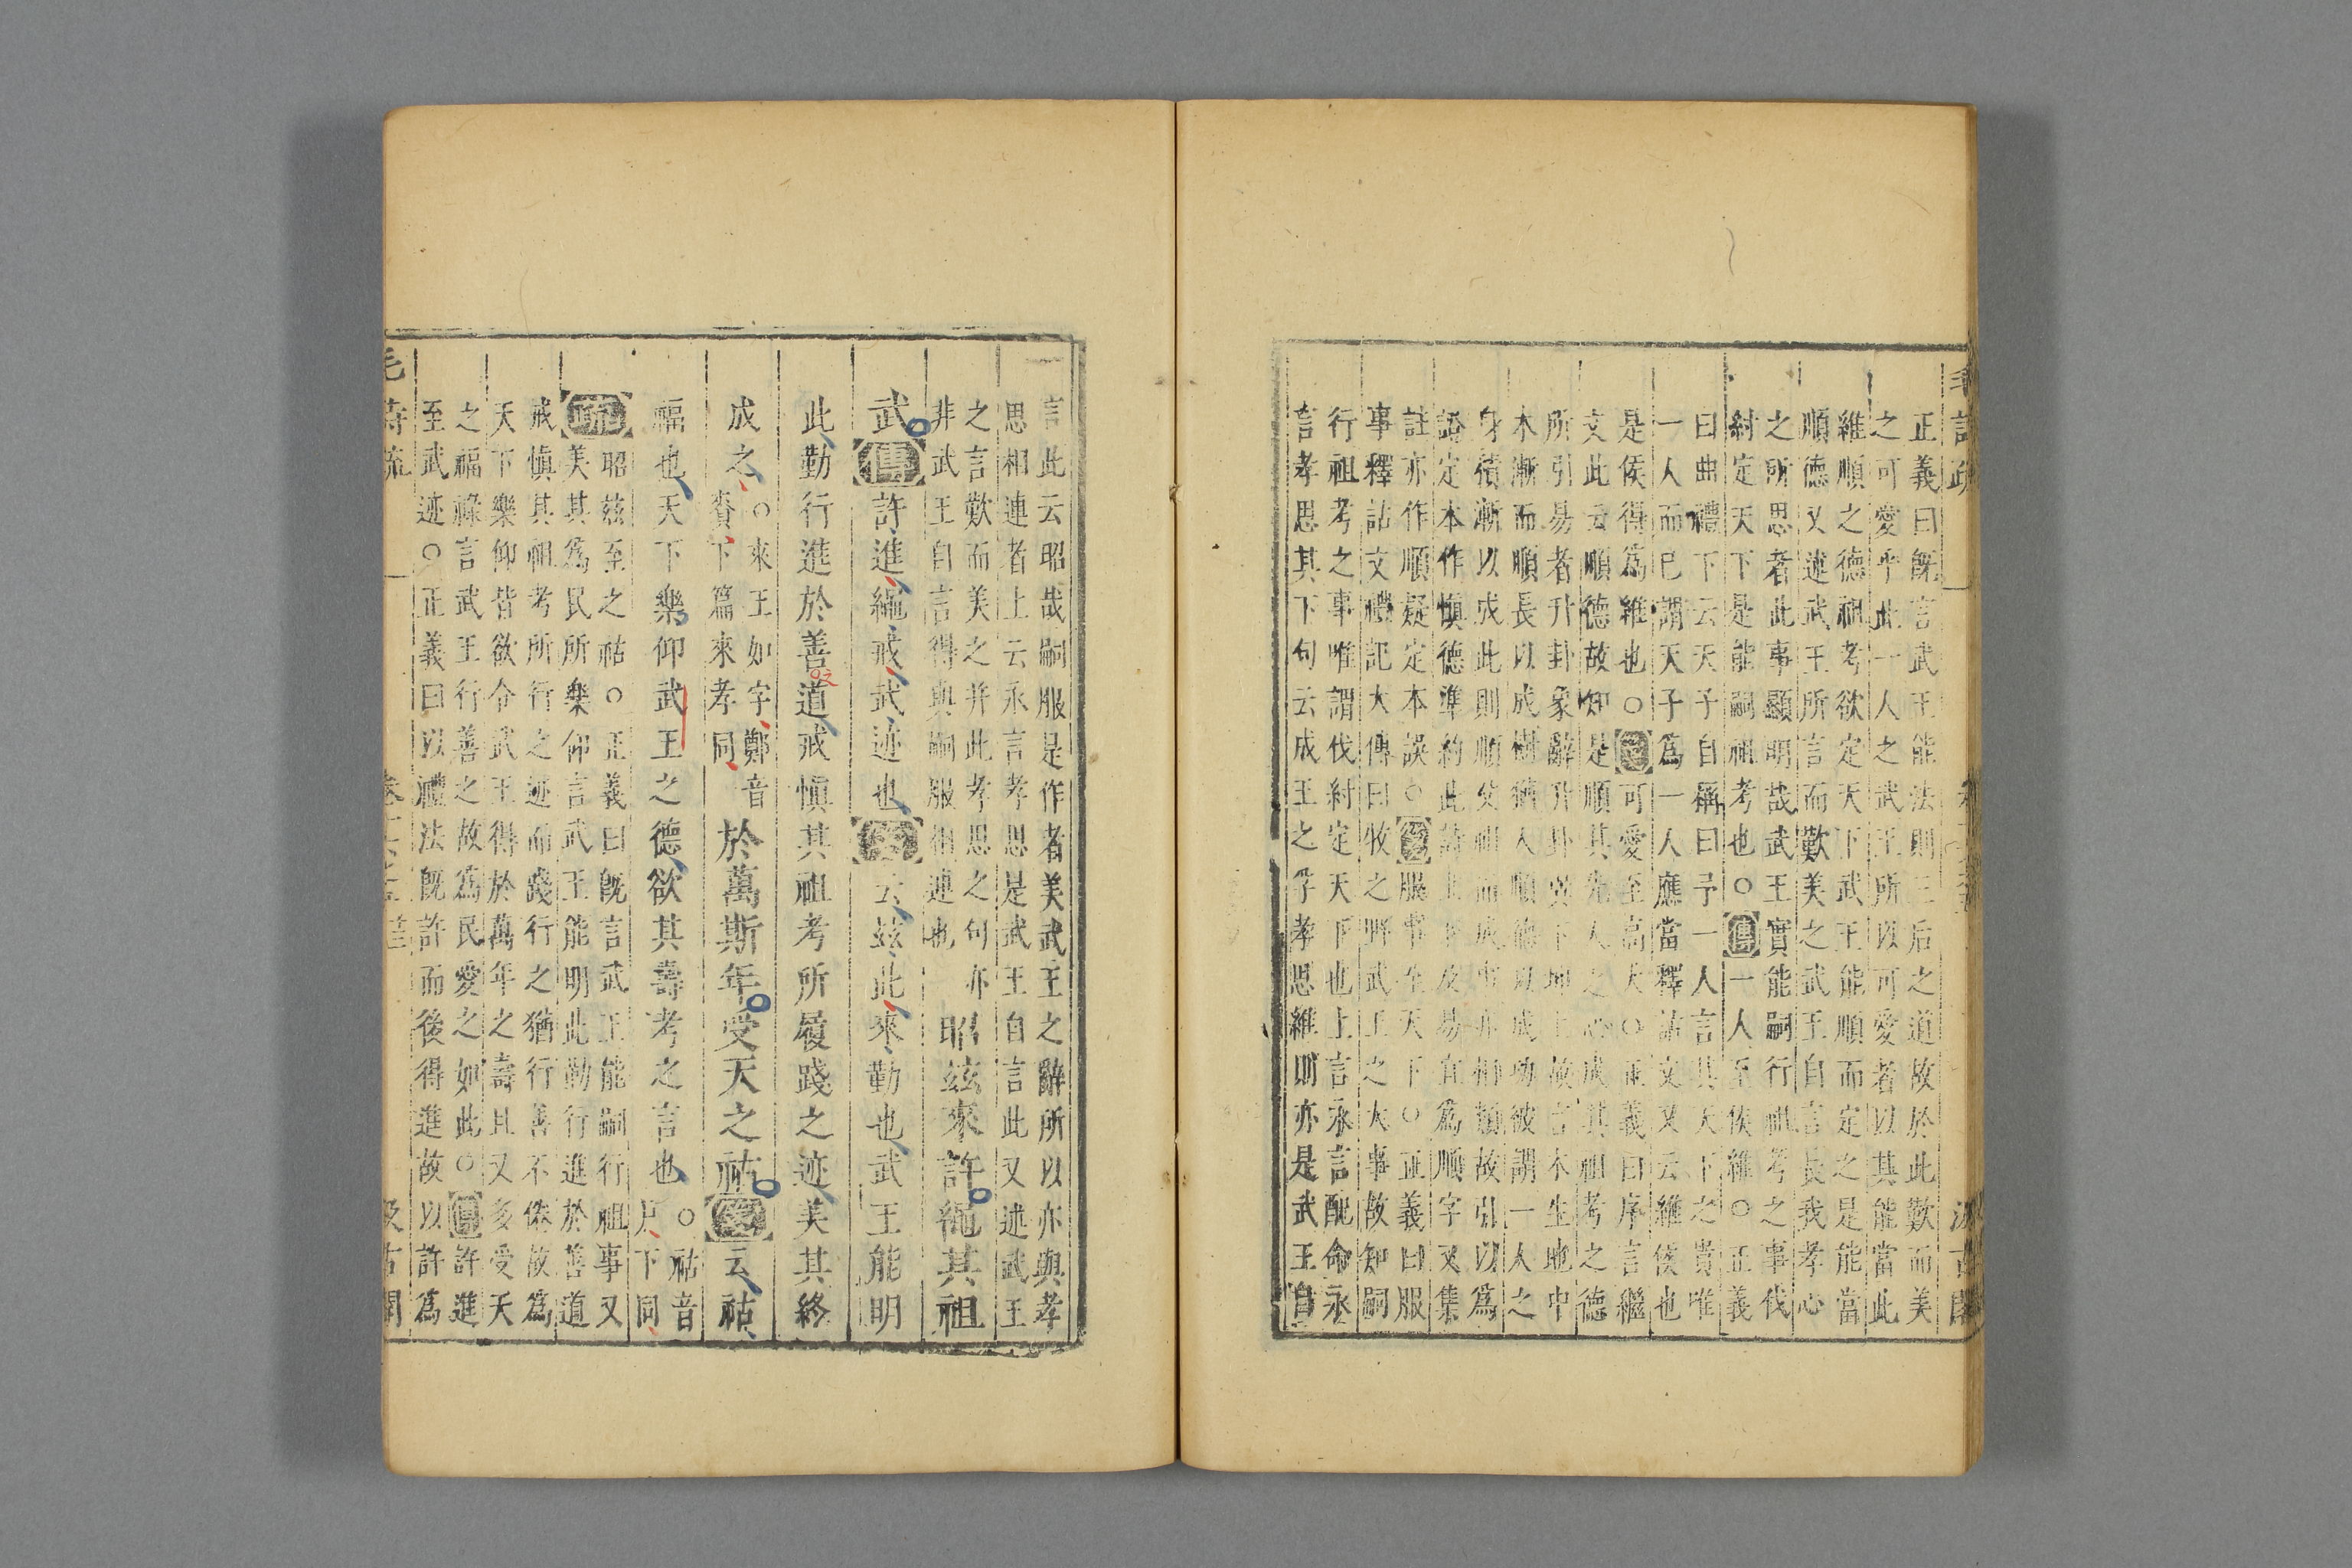 毛詩疏 汲古閣
正義曰旣言武王能法則三后之道故於此歎而美
之可愛乎此一人之武王所以可愛者以其能當此
維順之德祖考欲定天下武王能順而定之是能當
順德又述武王所言而歎美之武王自言長我孝心
之所思者此事顯明哉武王實能嗣行祖考之事伐
紂定天下是能嗣祖考也○傳一人至侯維○正義
曰曲禮下云天子自稱曰予一人言其天下之貴唯
一人而已謂天子爲一人應當釋詁文又云維侯也
是侯得爲維也○箋可愛至高大○正義曰序言繼
文此云順德故知是順其先人之心成其祖考之德
所引易者升卦象辭升卦巽下坤上故言木生地中
木漸而順長以成樹猶人順德以成功彼謂一人之
身積漸以成此則順父祖而成事亦相類故引以爲
證定本作愼德準約此詩上下及易宜爲順字又集
註亦作順疑定本誤○箋服事至天下○正義曰服
事釋詁文禮記大傳曰牧之野武王之大事故知嗣
行祖考之事唯謂伐紂定天下也上言永言配命永
言孝思其下句云成王之孚孝思維則亦是武王自
言此云昭哉嗣服是作者美武王之辭所以亦與孝
思相連者上云永言孝思是武王自言此又述武王
之言歎而美之幷此孝思之句亦
非武王自言得與嗣服相連也
昭兹來許繩其祖
武傳許進繩戒武迹也箋云兹此來勤也武王能明
此勤行進於善道戒愼其祖考所履踐之迹美其終
成之
○來王如字鄭音
賚下篇來孝同
於萬斯年受天之祜箋云祜
福也天下樂仰武王之德欲其壽考之言也
○祜音
戶下同
疏
昭兹至之祜○正義曰旣言武王能嗣行祖事又
美其爲民所樂仰言武王能明此勤行進於善道
戒愼其祖考所行之迹而踐行之猶行善不倦故爲
天下樂仰皆欲令武王得於萬年之壽且又多受天
之福祿言武王行善之故爲民愛之如此○傳許進
至武迹○正義曰以禮法旣許而後得進故以許爲
毛詩疏 汲古閣